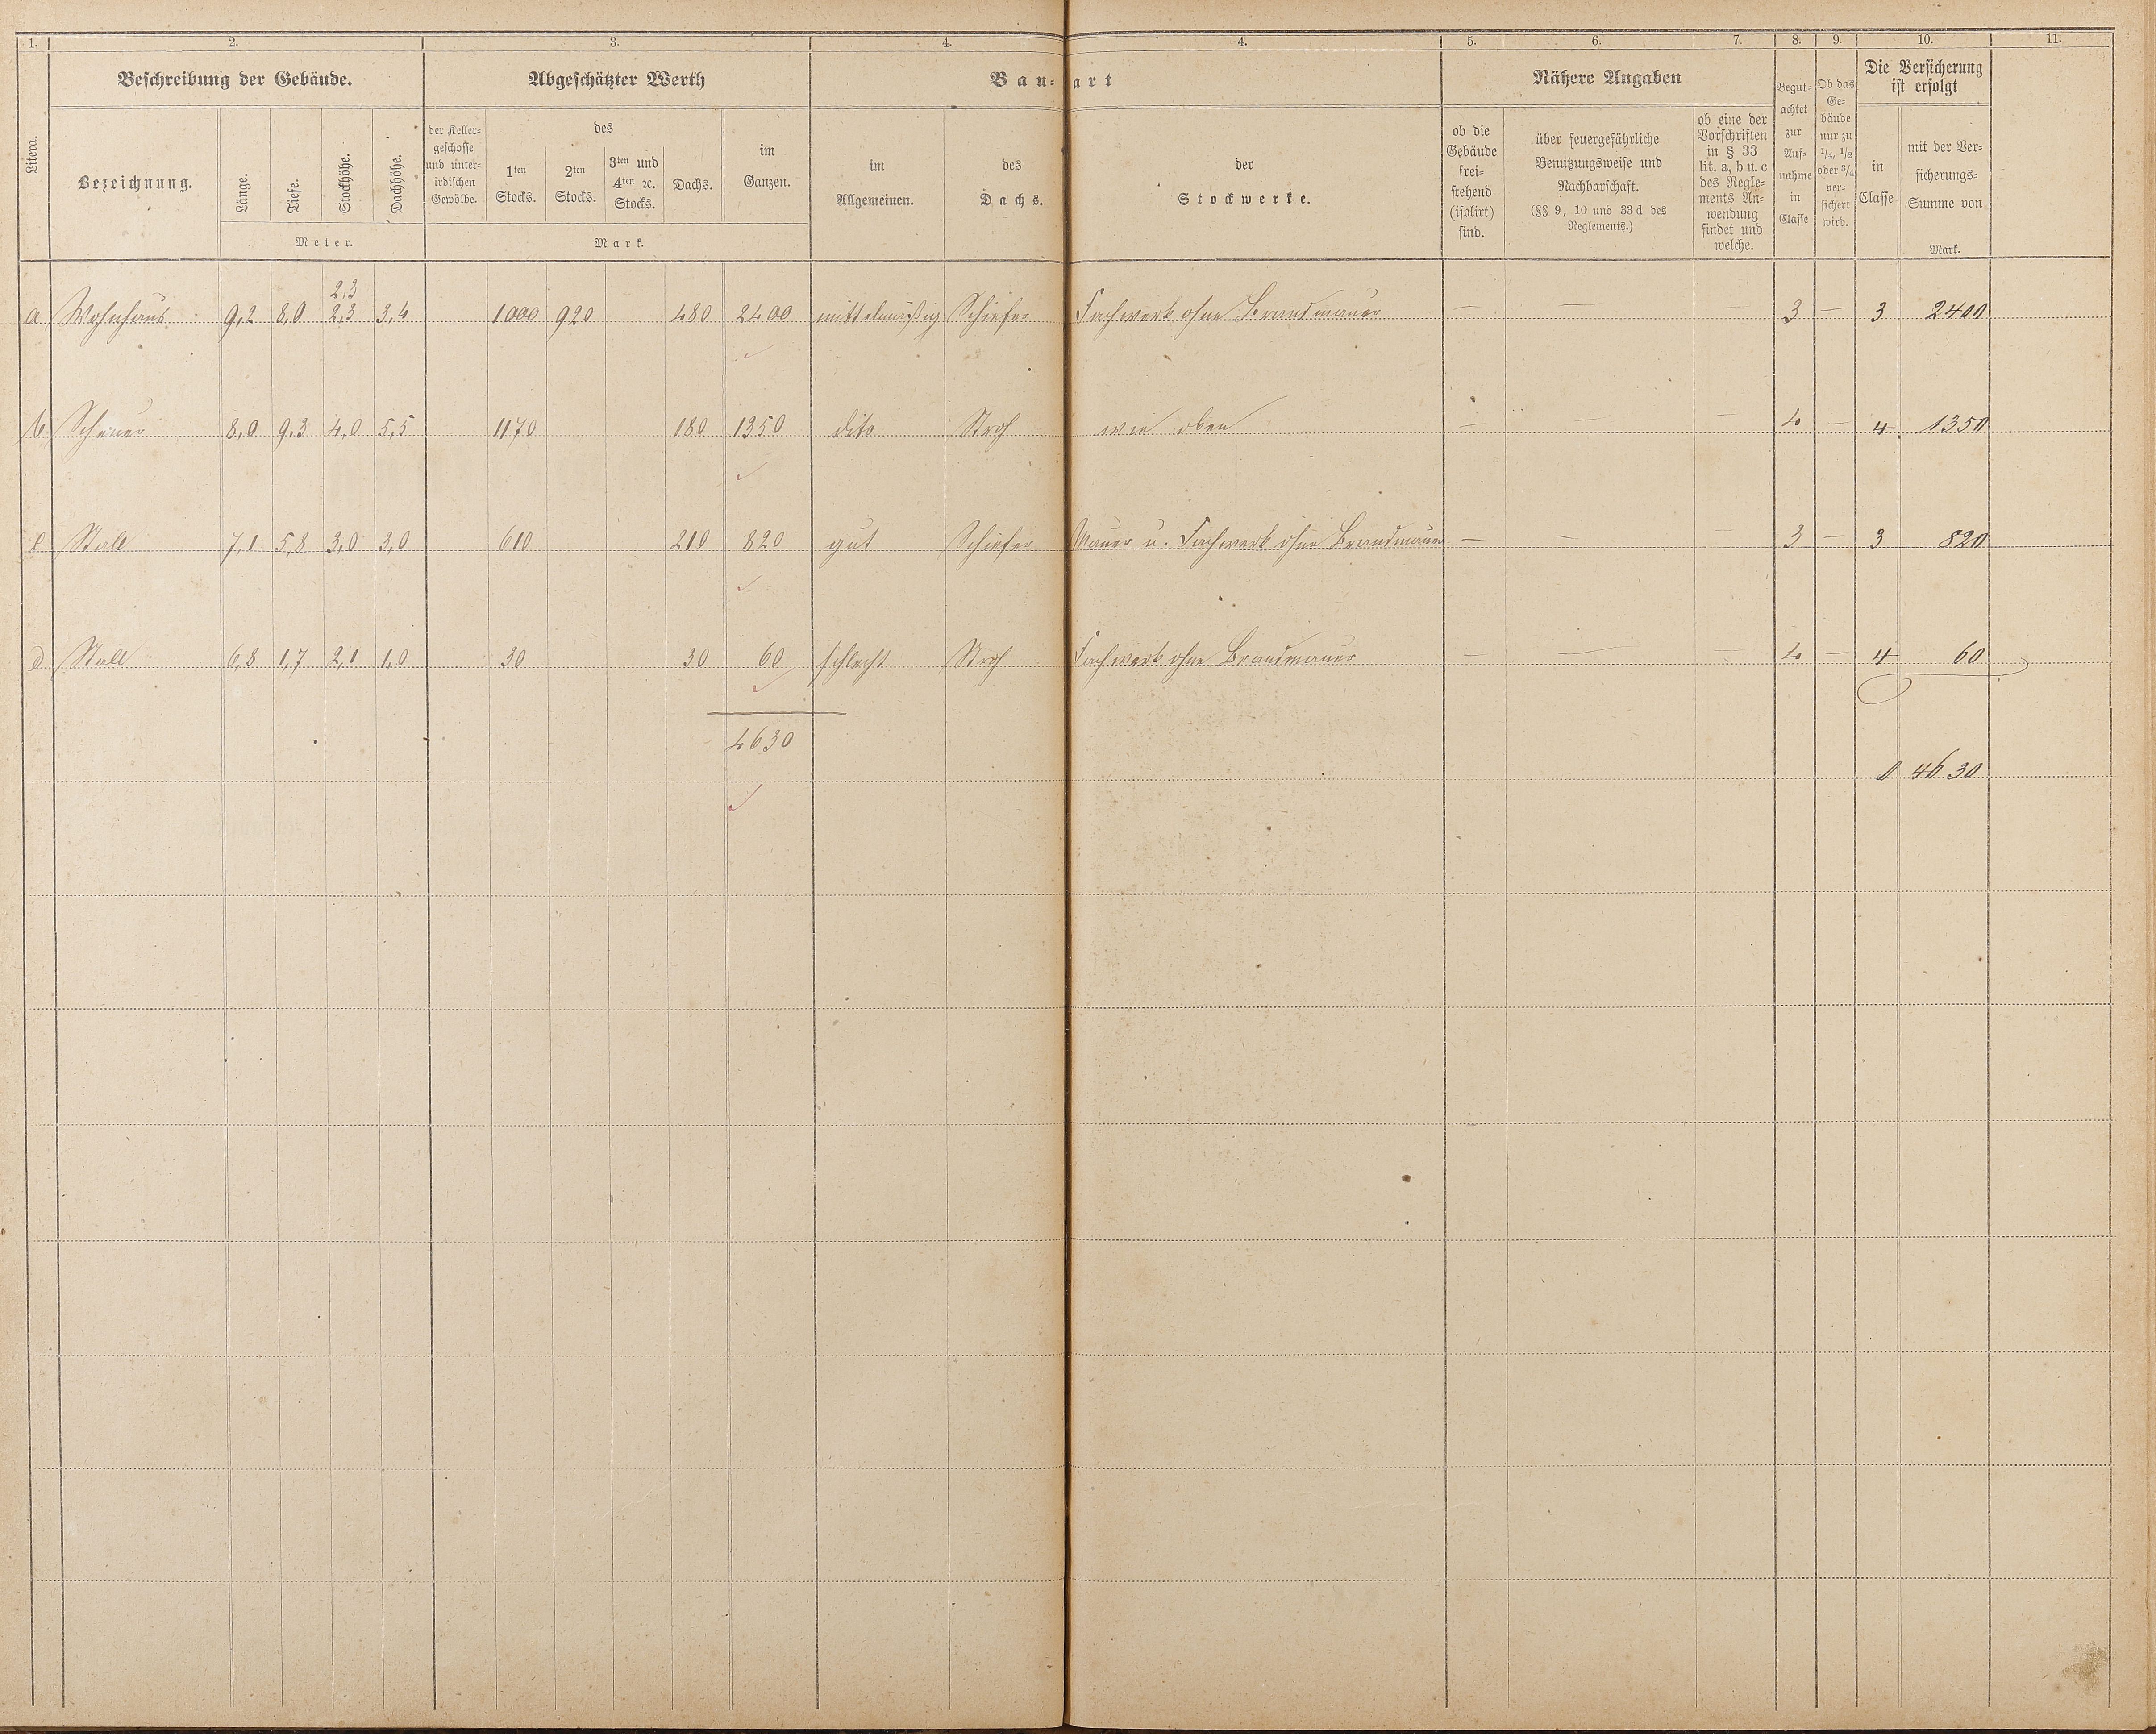 1. 2. 3. 4. 4. 5. 6. 7. 8. 9. 10. 11.
Litera.
Beschreibung der Gebäude.
Bezeichnung.
Länge. Tiefe. Stockhöhe. Dachhöhe.
Meter.
Abgeschätzter Werth
der Keller-
geschosse
und unter-
irdischen
Gewölbe.
des
1ten
Stocks.
2ten
Stocks.
3ten und
4ten ꝛc.
Stocks.
Dachs.
im
Ganzen.
Mark.
Bau-art
im
Allgemeinen.
des
Dachs.
der
Stockwerke.
Nähere Angaben
ob die
Gebäude
frei-
stehend
(isolirt)
sind.
über feuergefährliche
Benutzungsweise und
Nachbarschaft.
(§§ 9, 10 und 33 d des
Reglements.)
ob eine der
Vorschriften
in § 33
lit. a, b u. c
des Regle-
ments An-
wendung
findet und
welche.
Begut-
achtet
zur
Auf-
nahme
in
Classe
Ob das
Ge-
bäude
nur zu
1/4, 1/2
oder 3/4
ver-
sichert
wird.
Die Versicherung
ist erfolgt
in
Classe
mit der Ver-
sicherungs-
Summe von
Mark.
2,3
a Wohnhaus 9,2 8,0 2,3 3,4 1000 920 480 2400 mittelmäßig Schiefer Fachwerk ohne Brandmauer — — — 3 — 3 2400
b Scheuer 8,0 9,3 4,0 5,5 1170 180 1350 dito Stroh wie oben — — — 4 — 4 1350
c Stall 7,1 5,8 3,0 3,0 610 210 820 gut Schiefer Mauer u. Fachwerk ohne Brandmauer — — — 3 — 3 820
d Stall 6,8 1,7 2,1 1,0 30 30 60 schlecht Stroh Fachwerk ohne Brandmauer — — — 4 — 4 60
4630
4630